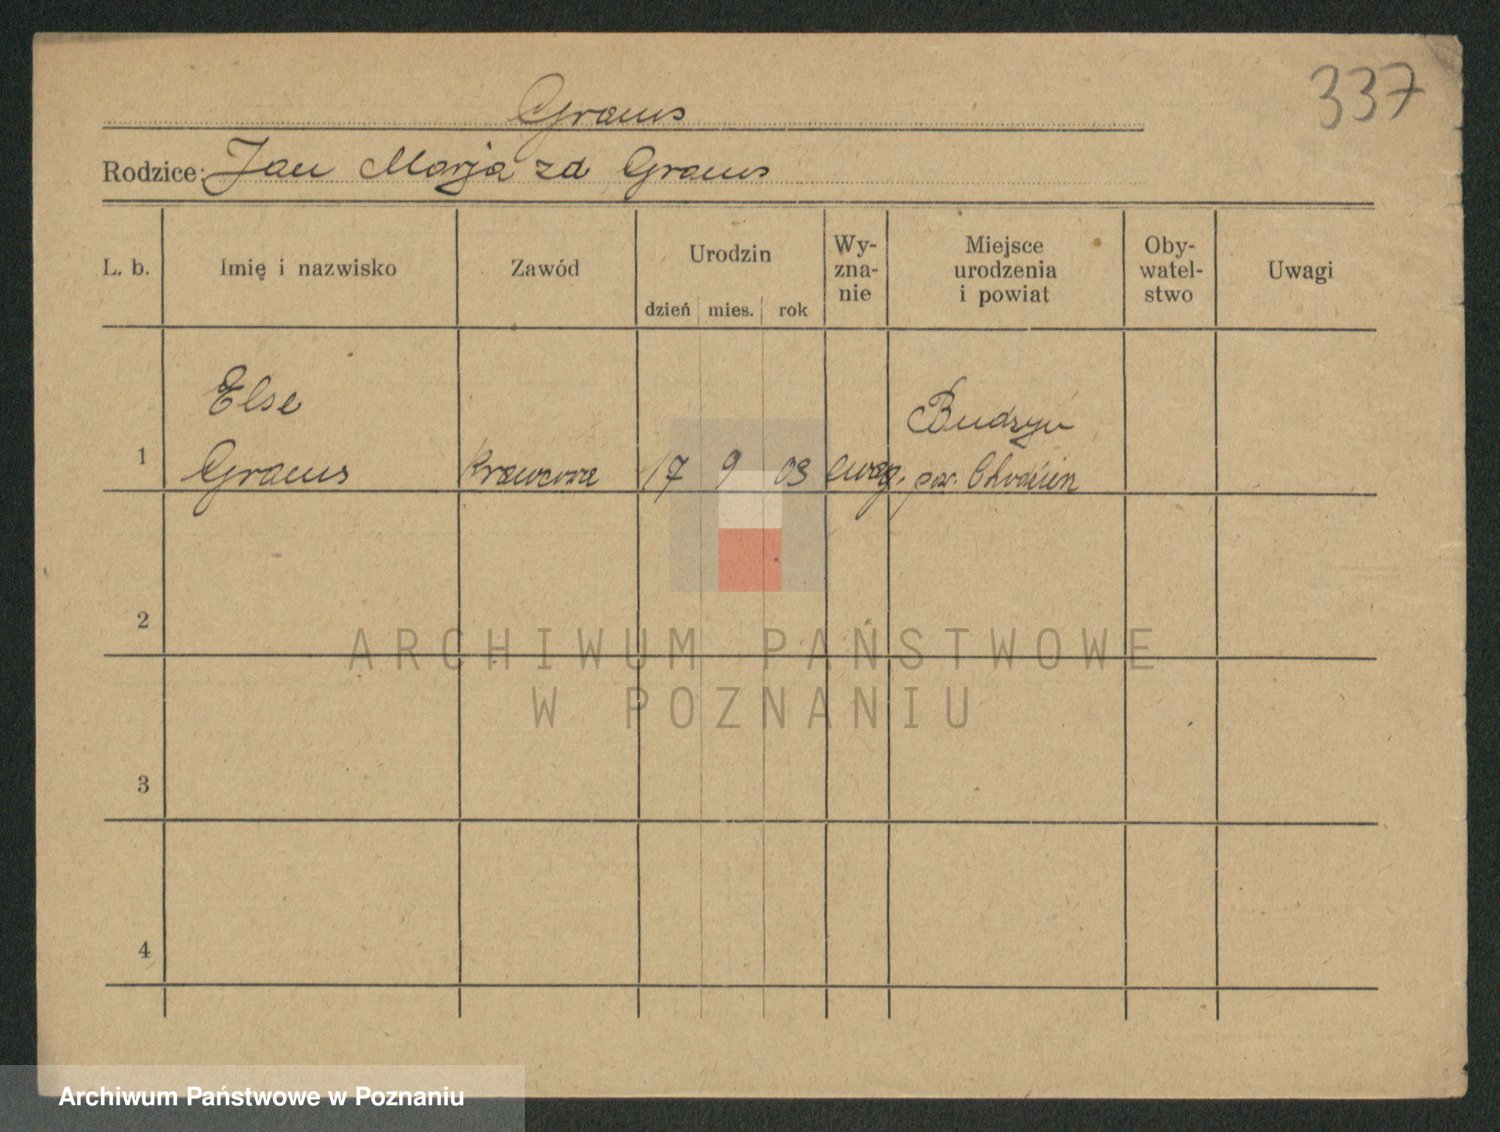 337
Graus
Rodzice: Jan Marja zd Graus
L. b. Imię i nazwisko Zawód Urodzin dzień mies. rok Wy-zna-nie Miejsce urodzenia i powiat Oby-watel-stwo Uwagi
Else Budzyń
1 Graus Krawcowa 17 9 03 ewag. pow. Chodzież
2
3
4
ARCHIWUM PAŃSTWOWE
W POZNANIU
Archiwum Państwowe w Poznaniu